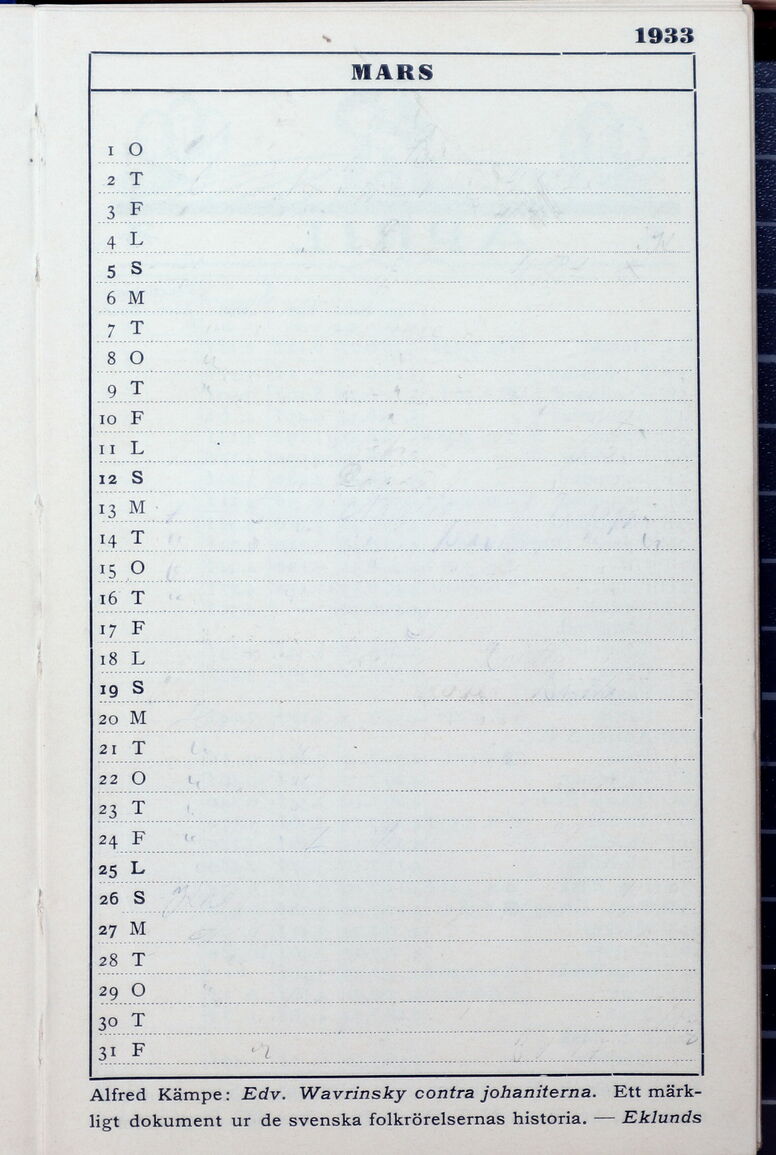 1933
MARS
1 O
2 T
3 F
4 L
5 S
6 M
7 T
8 O
9 T
10 F
11 L
12 S
13 M
14 T
15 O
16 T
17 F
18 L
19 S
20 M
21 T
22 O
23 T
24 F
25 L
26 S
27 M
28 T
29 O
30 T
31 F
Alfred Kämpe: Edv. Wavrinsky contra johaniterna. Ett märk-
ligt dokument ur de svenska folkrörelsernas historia. — Eklunds